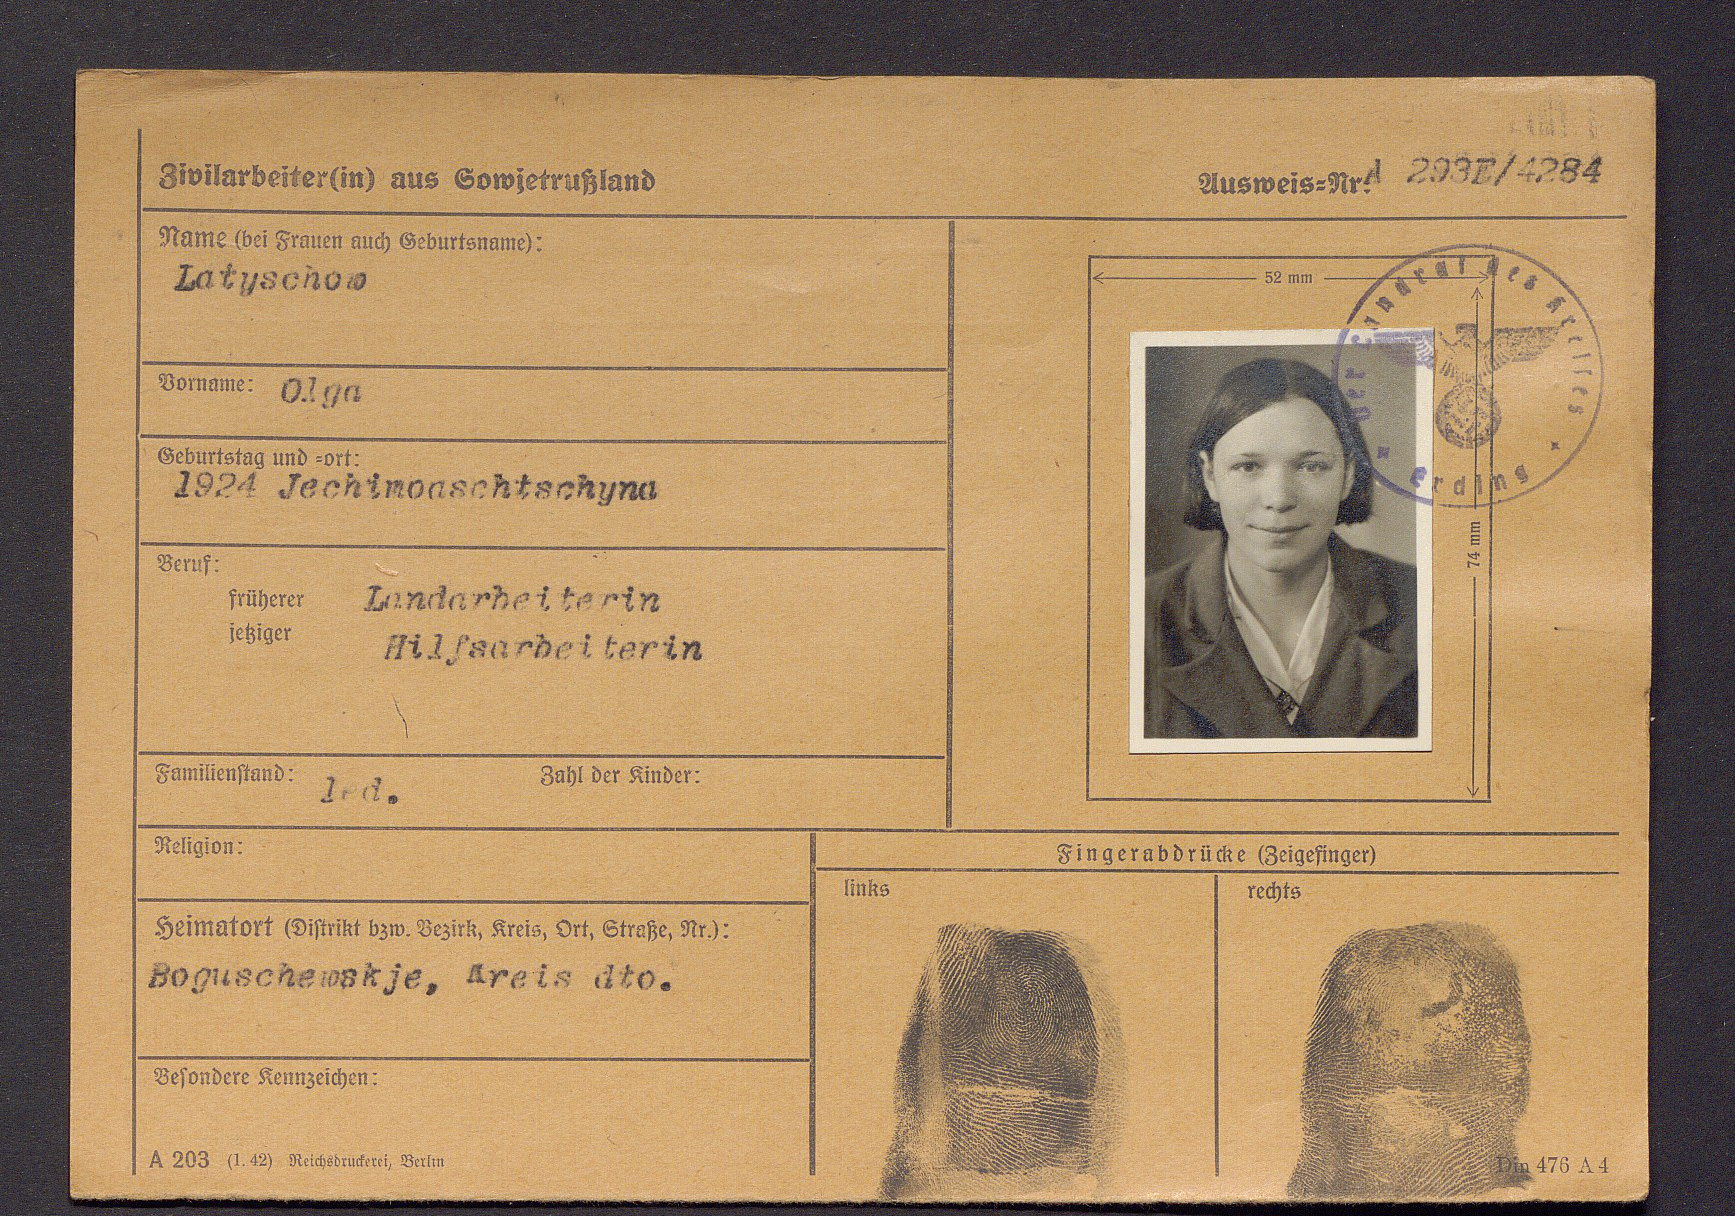 Zivilarbeiter(in) aus Sowjetrußland
Ausweis=Nr. A 293E/4284
Name (bei Frauen auch Geburtsname):
Latyschow
Vorname: Olga
Geburtstag und =ort:
1924 Jechimoaschtschyna
Beruf:
früherer Landarbeiterin
jetziger Hilfsarbeiterin
Familienstand: led. Zahl der Kinder:
Religion:
Heimatort (Distrikt bzw. Bezirk, Kreis, Ort, Straße, Nr.):
Boguschewskje, Kreis dto.
Besondere Kennzeichen:
A 203 (1. 42) Reichsdruckerei, Berlin
52 mm
74 mm
Der Landrat des Kreises
Erding
Fingerabdrücke (Zeigefinger)
links
rechts
Din 476 A 4